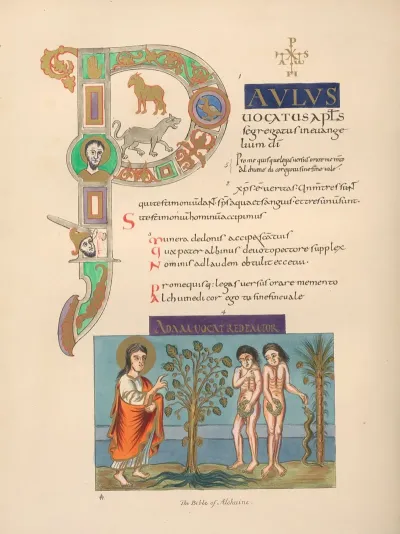 PAULUS
UOCATUS APLS
segregatus in evange
lium di
Pro me quisque legas versus orare
tu sine fine vale
XPS e veritas Qm tres sunt
qui testimonium dant sps aqua et sanguis et tres unum sunt
Si testimonium hominum accipimus
Munera de donis accipe tuis
Quae pater albinus devoto pectore supplex
Nominis ad laudem obtulit ecce tui
Pro me quisq: legas versus orare memento
Alchuine dicor ego tu sine fine vale
ADAM UOCAT REDEMTOR
The Bible of Alchuine.